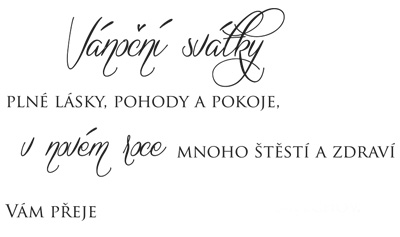 Vánoční svátky
PLNÉ LÁSKY, POHODY A POKOJE,
v novém roce MNOHO ŠTĚSTÍ A ZDRAVÍ
VÁM PŘEJE